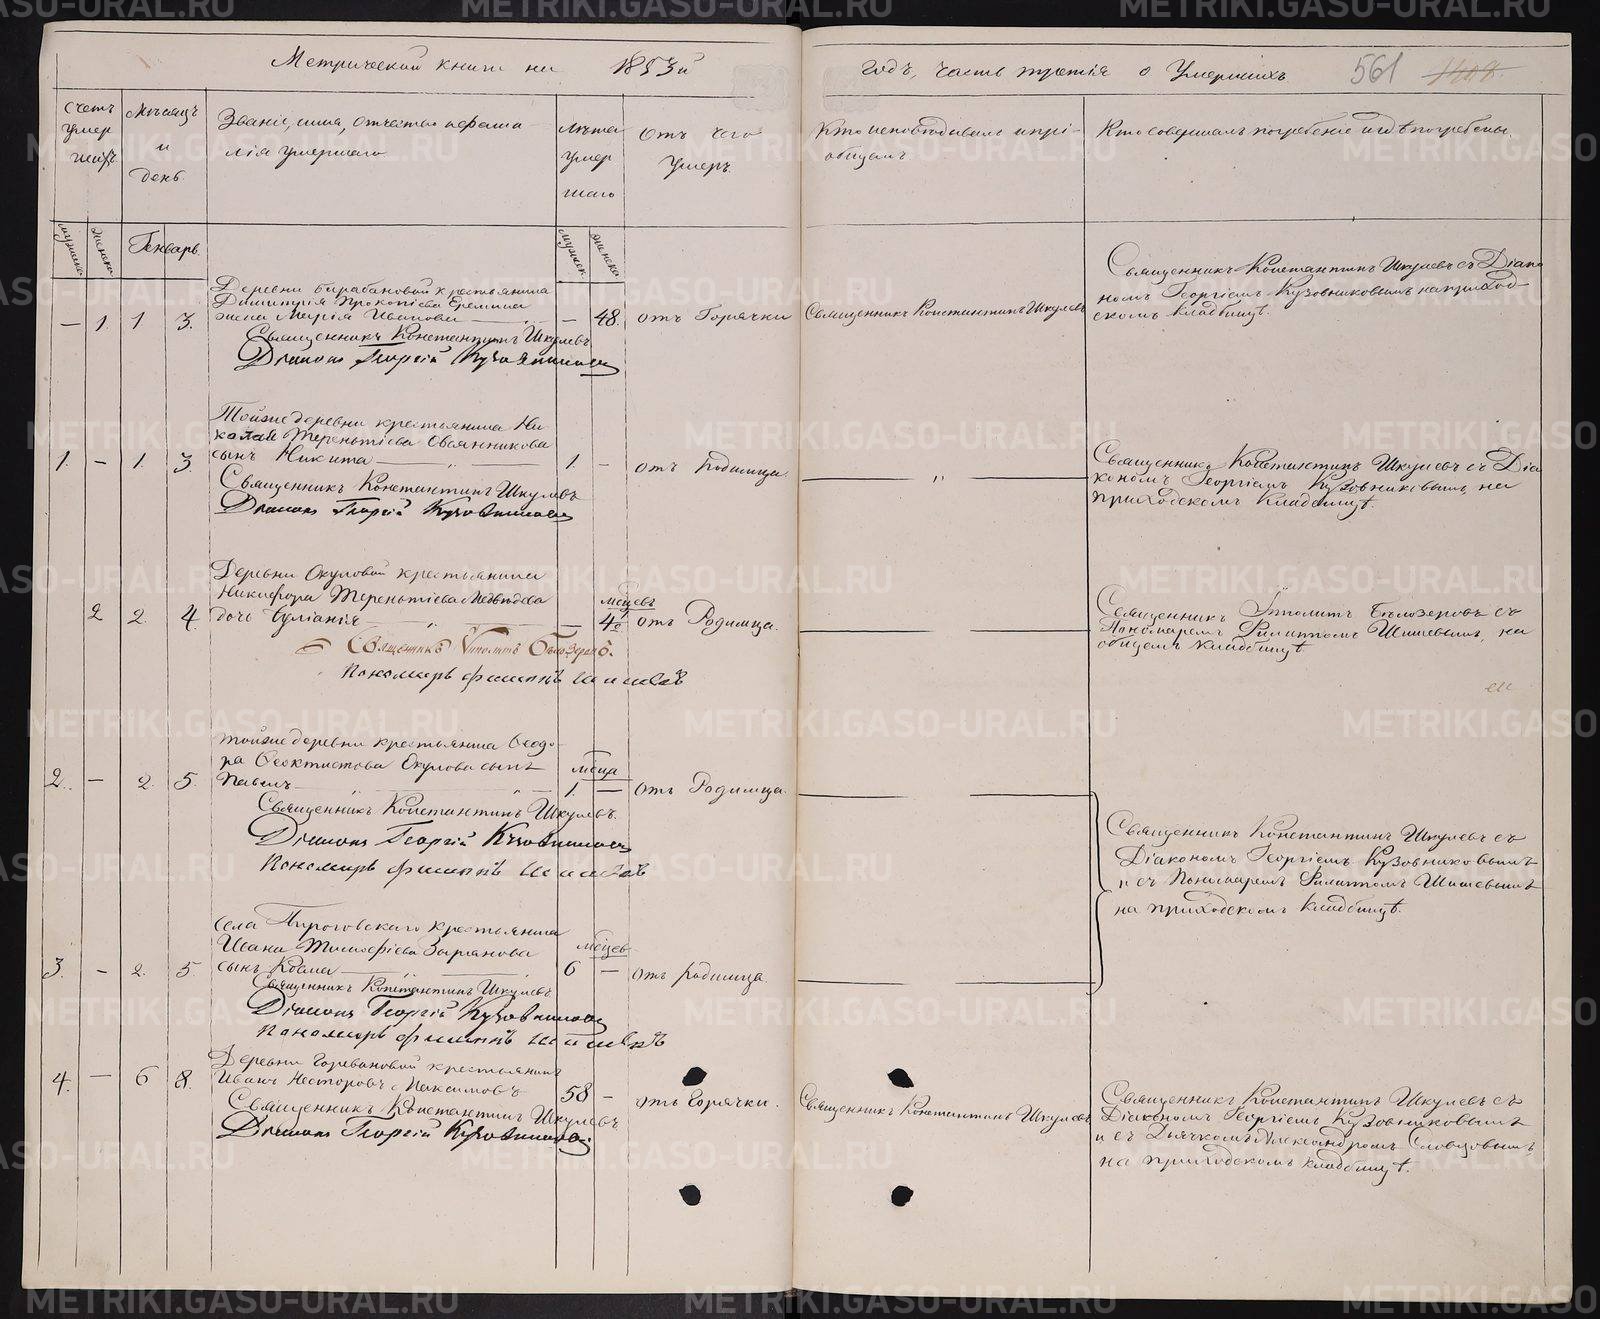 Метрической книги на 1853й
годъ, часть третія о Умершихъ 561
Счетъ умер шихъ
Мѣсяцъ и день.
Званіе, имя, отчество и фами-
лія умершаго
Лѣта умер шаго
Отъ чего умеръ.
Кто исповѣдывалъ и прі-
общалъ.
Кто совершалъ погребеніе и гдѣ погребены
мужеска женска Генварь. мужск. женска
Деревни Барабановой крестьянина
Димитрія Прокопіева Еремина
жена Марія Иванова
— 1. 1 3. — 48. отъ Горячки
Священникъ Константинъ Шкулевъ
Діаконъ Георгій Кузовниковъ
Священникъ Константинъ Шкулевъ
Священникъ Константинъ Шкулевъ съ Діако
номъ Георгіемъ Кузовниковымъ на приход-
скомъ кладбищѣ.
Тойже деревни крестьянина Ни
колая Терентіева Овсянникова
сынъ Никита
1. — 1. 3. 1. — отъ Родимца.
Священникъ Константинъ Шкулевъ
Діаконъ Георгій Кузовниковъ
Священникъ Константинъ Шкулевъ съ Діа
кономъ Георгіемъ Кузовниковымъ, на
приходскомъ Кладбищѣ.
Деревни Окуловой крестьянина
Никифора Терентіева Медвѣдева
дочь Еуліанія
2 2. 4. — мѣцевъ 4 отъ Родимца.
Священникъ Ипполитъ Бѣлозеровъ.
Пономарь Филиппъ Шишевъ
Священникъ Ипполитъ Бѣлозеровъ съ
Пономаремъ Филиппомъ Шишевымъ, на
общемъ кладбищѣ.
Тойже деревни крестьянина Ѳеодо-
ра Ѳеоктистова Окулова сынъ
Павелъ
2. — 2. 5. мѣца 1. — отъ Родимца.
Священникъ Константинъ Шкулевъ.
Діаконъ Георгій Кузовниковъ
Пономарь Филиппъ Шишевъ
Священникъ Константинъ Шкулевъ съ
Діакономъ Георгіемъ Кузовниковымъ
и съ Пономаремъ Филиппомъ Шишевымъ
на приходскомъ Кладбищѣ.
Села Пироговскаго крестьянина
Ивана Тимофіева
сынъ Козма
3. — 2. 5 мѣцев 6 — отъ Родимца
Священникъ Константинъ Шкулевъ
Діаконъ Георгій Кузовниковъ
Пономарь Филиппъ Шишевъ
Деревни крестьянинъ
Иванъ Несторовъ Максимовъ
4. — 6 8. 58 — отъ Горячки.
Священникъ Константинъ Шкулевъ
Діаконъ Георгій Кузовниковъ
Священникъ Константинъ Шкулевъ
Священникъ Константинъ Шкулевъ съ
Діакономъ Георгіемъ Кузовниковымъ
и съ Дьячкомъ Александромъ Словцовымъ
на приходскомъ кладбищѣ.
METRIKI.GASO-URAL.RU